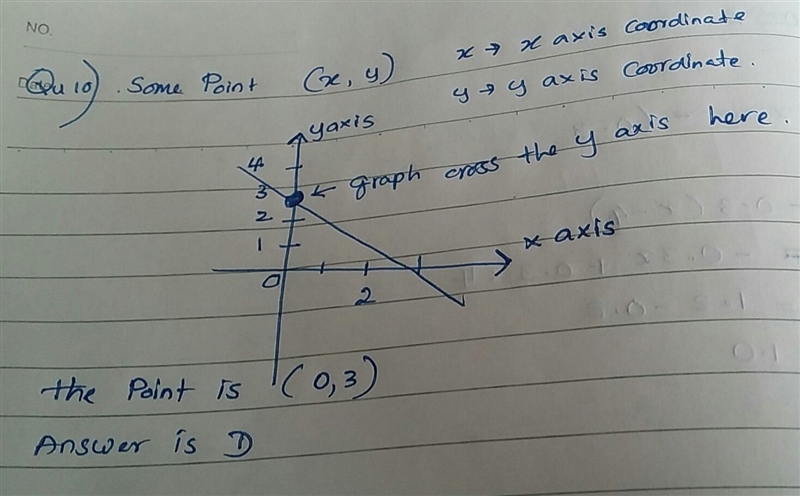 NO.
Qu 10). Some Point (x, y) x → x axis coordinate
y → y axis Coordinate.
y axis
4
3 ← graph cross the y axis here.
2
1
x axis
0 2
the Point is (0,3)
Answer is D